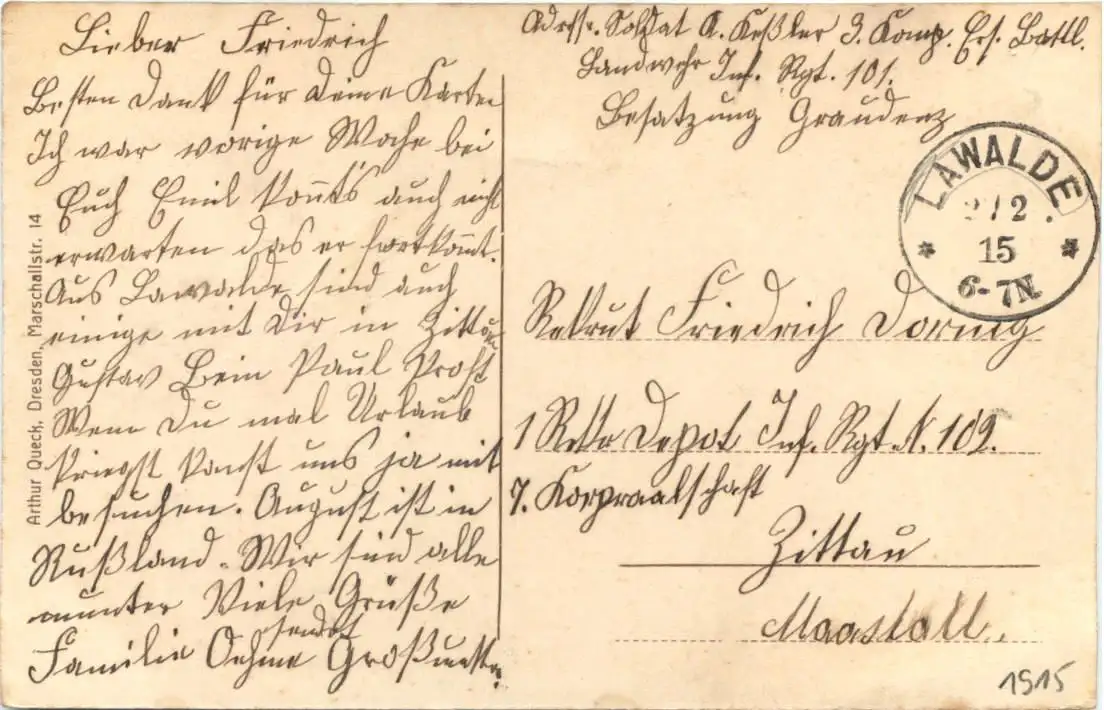 Lieber Friedrich
Besten Dank für Deine Karten
Ich war vorige Woche bei
Euch Emil konnts auch nicht
erwarten das er fortkommt.
Aus Lawalde sind auch
einige mit Dir in Zittau
Gustav Paul
Wenn Du mal Urlaub
kriegst kanst uns ja mit
besuchen. August ist in
Rußland. Wir sind alle
munter Viele Grüße
sendet
Familie Oehme Großmutter.
Adresse. Soldat A. Keßler 3. Komp. Ers. Batll.
Landwehr Inf. Rgt. 101.
Besatzung Graudenz
LAWALDE
2/2.
15
6-7N.
Rekrut Friedrich Döring
1 Depot Inf. Rgt. N. 102.
7. Korpraalschaft
Zittau
1915
Arthur Queck, Dresden, Marschallstr. 14